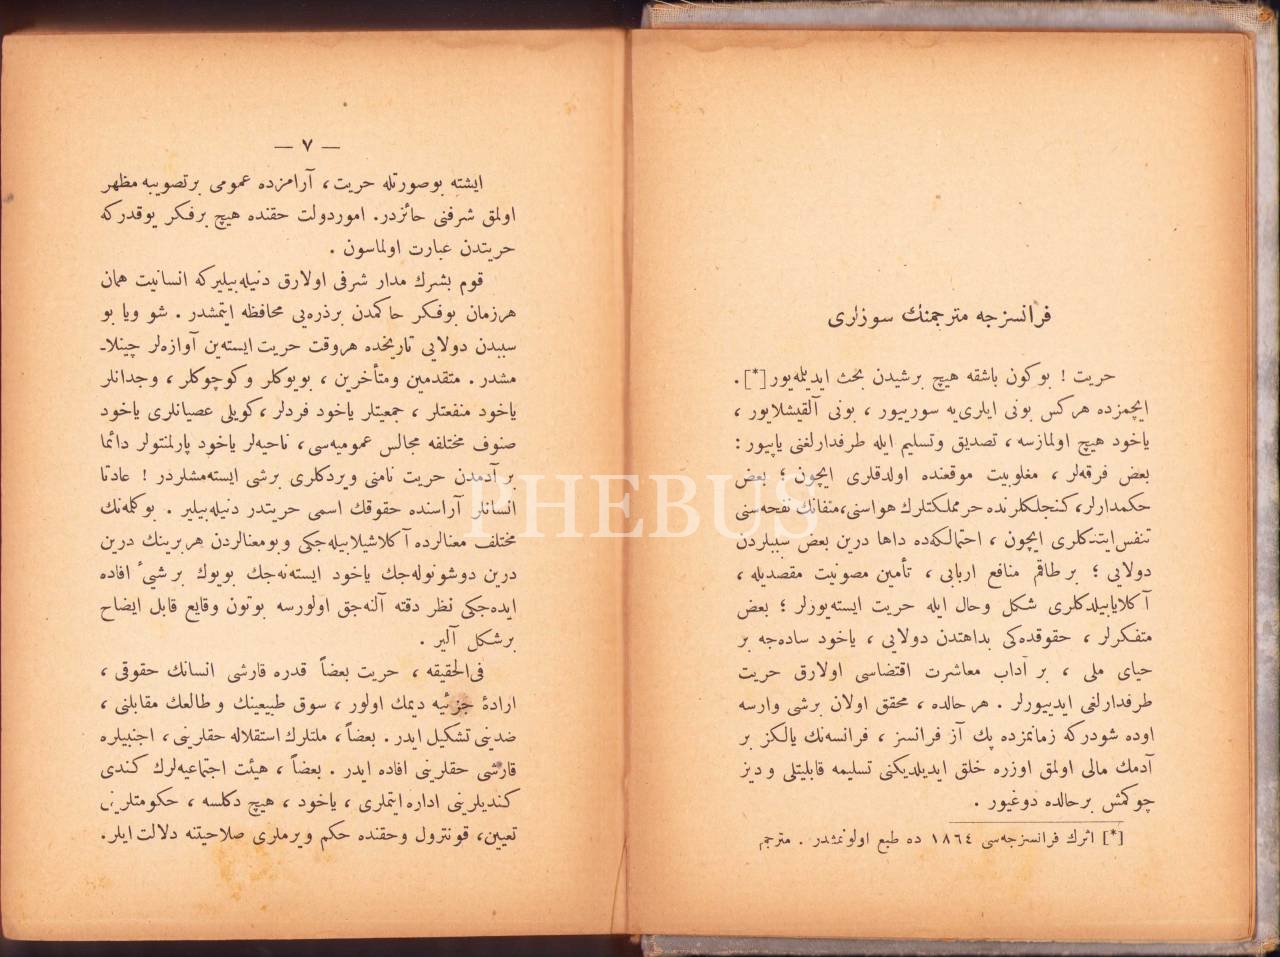 فرانسزجه مترجمنك سوزلری
حریت ! بوكون باشقه هیچ برشیدن بحث ایدیلمه‌یور [*] .
ایچمزده هركس بونی ایلری‌یه سورییور ، بونی آلقیشلایور ،
یاخود هیچ اولمازسه ، تصدیق وتسلیم ایله طرفدارلغنی یاپیور :
بعض فرقه‌لر ، مغلوبیت موقعنده اولدقلری ایچون ؛ بعض
حكمدارلر، كنجلكلرنده حرمملكتلرك هواسنی،منفانك نفحه‌سنی
تنفس‌ایتدكلری ایچون ، احتمالكه‌ده داها درین بعض سببلردن
دولایی ؛ برطاقم منافع اربابی ، تأمین مصونیت مقصدیله ،
آكلایابیلدكلری شكل وحال ایله حریت ایسته‌یوزلر ؛ بعض
متفكرلر ، حقوقده‌كی بداهتدن دولایی ، یاخود ساده‌جه بر
حیای ملی ، بر آداب معاشرت اقتضاسی اولارق حریت
طرفدارلغی ایدییورلر . هرحالده ، محقق اولان برشی وارسه
اوده شودركه زمانمزده پك آز فرانسز ، فرانسه‌نك یالكز بر
آدمك مالی اولمق اوزره خلق ایدیلدیكنی تسلیمه قابلیتلی و دیز
چوكمش برحالده دوغیور .
[*] اثرك فرانسزجه‌سی ١٨٦٤ ده طبع اولونمشدر . مترجم
— ٧ —
ایشته بوصورتله حریت ، آرامزده عمومی برتصویبه مظهر
اولمق شرفنی حائزدر. اموردولت حقنده هیچ برفكر یوقدركه
حریتدن عبارت اولماسون .
قوم بشرك مدار شرفی اولارق دنیله‌بیلیركه انسانیت همان
هرزمان بوفكر حاكمدن برذره‌یی محافظه ایتمشدر . شو ویا بو
سببدن دولایی تاریخده هروقت حریت ایسته‌ین آوازه‌لر چینلا-
مشدر . متقدمین ومتأخرین ، بویوكلر وكوچوكلر ، وجدانلر
یاخود منفعتلر ، جمعیتلر یاخود فردلر ، كویلی عصیانلری یاخود
صنوف مختلفه مجالس عمومیه‌سی ، ناحیه‌لر یاخود پارلمنتولر دائما
بر آدمدن حریت نامنی ویردكلری برشی ایسته‌مشلردر ! عادتا
انسانلر آراسنده حقوقك اسمی حریتدر دنیله‌بیلیر . بوكلمه‌نك
مختلف معنالرده آكلاشیلابیله‌جكی وبومعنالردن هربرینك درین
درین دوشونوله‌جك یاخود ایسته‌نه‌جك بویوك برشیء افاده
ایده‌جكی نظر دقته آلنه‌جق اولورسه بوتون وقایع قابل ایضاح
برشكل آلیر .
فی‌الحقیقه ، حریت بعضاً قدره قارشی انسانك حقوقی ،
ارادۀ جزئیه دیمك اولور ، سوق طبیعینك و طالعك مقابلنی ،
ضدینی تشكیل ایدر . بعضاً ، ملتلرك استقلاله حقلرینی ، اجنبیلره
قارشی حقلرینی افاده ایدر . بعضاً ، هیئت اجتماعیه‌لرك كندی
كندیلرینی اداره ایتملری ، یاخود ، هیچ دكلسه ، حكومتلرینی
تعیین، قونترول وحقنده حكم ویرملری صلاحیتنه دلالت ایلر.
PHEBUS